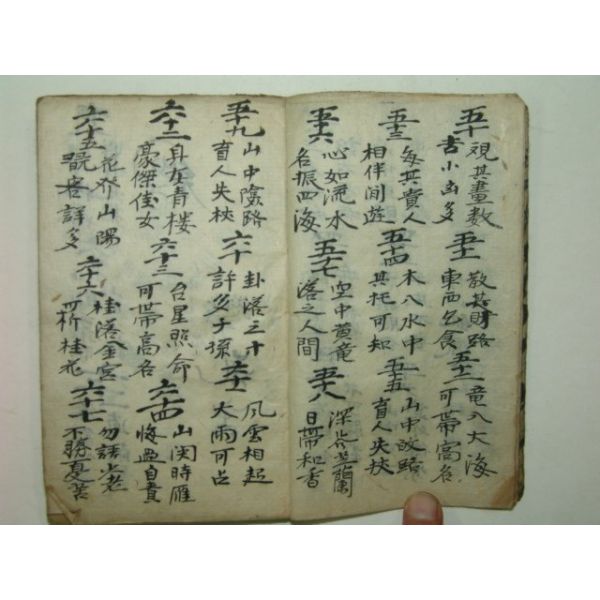 五十
視其畫數
吉小凶多
五十一
散其財路
東西乞食
五十二
竜入大海
可帶高名
五十三
每其貴人
相伴間遊
五十四
木入水中
其托可知
五十五
山中改路
盲人失杖
五十六
心如流水
名振四海
五十七
空中黄竜
落之人間
五十八
深谷芝蘭
日帶和香
五十九
山中險路
盲人失杖
六十
卦落三十
許多子孫
六十一
風雲相起
大雨可占
六十二
身在青楼
豪傑佳女
六十三
台星照命
可帶高名
六十四
山関時雁
悔過自責
六十五
花發山陽
害詳多
六十六
桂落金宮
折桂花
六十七
勿語少老
不勝憂苦